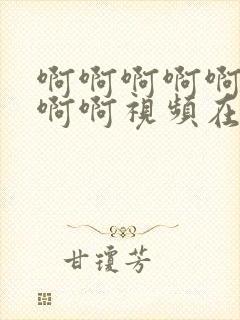 啊啊啊啊啊
啊啊視頻在
甘瓊芳